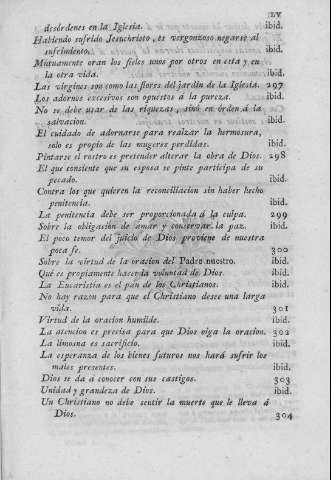 LV
desórdenes en la Iglesia. ibid.
Habiendo sufrido Jesuchristo, es vergonzoso negarse al
sufrimiento. ibid.
Mutuamente oran los fieles unos por otros en esta y en
la otra vida. ibid.
Las vírgines son como las flores del jardin de la Iglesia. 297
Los adornos excesivos son opuestos á la pureza. ibid.
No se debe usar de las riquezas, sinó en órden á la
salvacion. ibid.
El cuidado de adornarse para realzar la hermosura,
solo es propio de las mugeres perdidas. ibid.
Pintarse el rostro es pretender alterar la obra de Dios. 298
El que consiente que su esposa se pinte participa de su
pecado. ibid.
Contra los que quieren la reconciliacion sin haber hecho
penitencia. ibid.
La penitencia debe ser proporcionada á la culpa. 299
Sobre la obligacion de amar y conservar la paz. ibid.
El poco temor del juicio de Dios proviene de nuestra
poca fe. 300
Sobre la virtud de la oracion del Padre nuestro. ibid.
Qué es propiamente hacer la voluntad de Dios. ibid.
La Eucaristía es el pan de los Christianos. ibid.
No hay razon para que el Christiano desee una larga
vida. 301
Virtud de la oracion humilde. ibid.
La atencion es precisa para que Dios oiga la oracion. 302
La limosna es sacrificio. ibid.
La esperanza de los bienes futuros nos hará sufrir los
males presentes. ibid.
Dios se dá á conocer con sus castigos. 303
Unidad y grandeza de Dios. ibid.
Un Christiano no debe sentir la muerte que le lleva á
Dios. 304